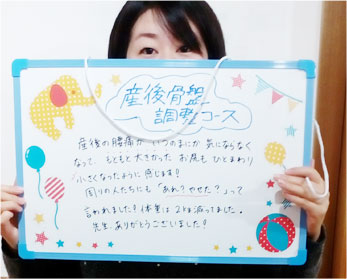 産後骨盤
調整コース
産後の腰痛が いつのまにか 気にならなく
なって もともと大きかった お尻も ひとまわり
小さくなったように 感じます!
周りの人たちにも「あれ?やせた?」って
言われました!体重は 2kg減ってました。
先生、ありがとうございました!